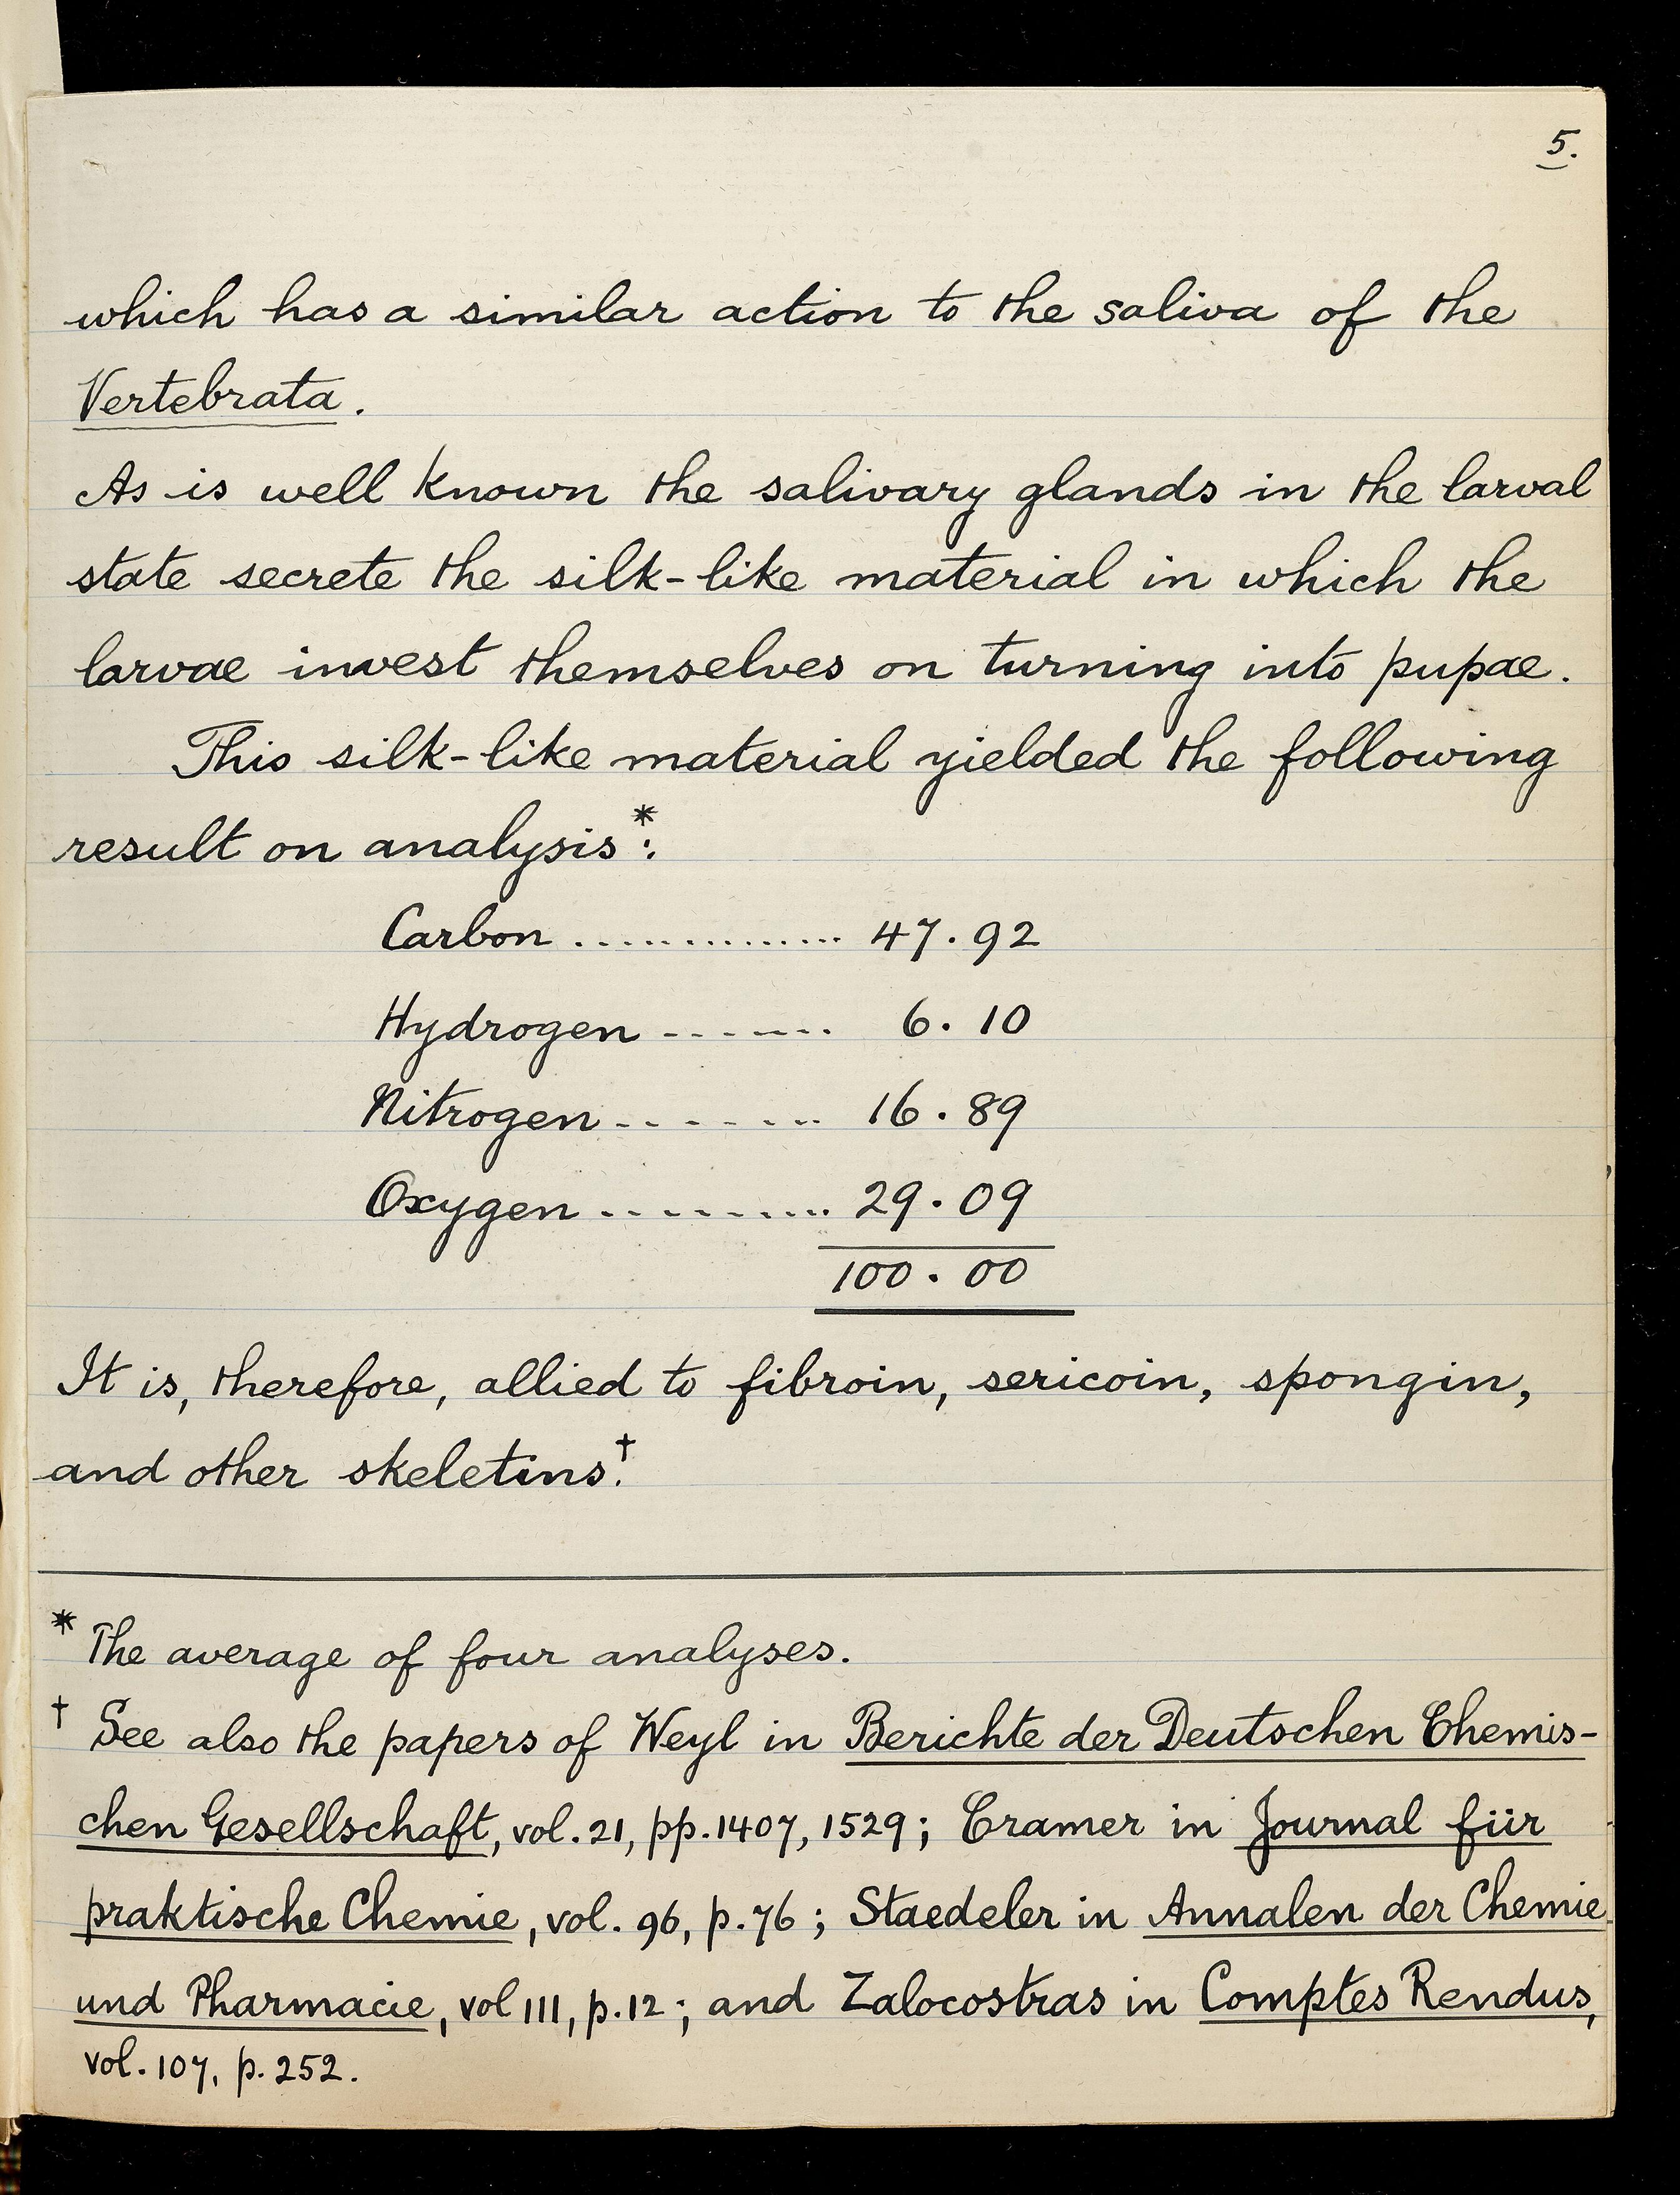 5.
which has a similar action to the saliva of the
Vertebrata.
As is well known the salivary glands in the larval
state secrete the silk-like material in which the
larvae invest themselves on turning into pupae.
This silk-like material yielded the following
result on analysis*:
Carbon .............. 47.92
Hydrogen ------- 6.10
Nitrogen ------- 16.89
Oxygen .......... 29.09
100.00
It is, therefore, allied to fibroin, sericoin, spongin,
and other skeletins.†
* The average of four analyses.
† See also the papers of Weyl in Berichte der Deutschen Chemis-
chen Gesellschaft, vol. 21, pp. 1407, 1529; Cramer in Journal für
praktische Chemie, vol. 96, p. 76; Staedeler in Annalen der Chemie
und Pharmacie, vol 111, p. 12; and Zalocostras in Comptes Rendus,
vol. 107, p. 252.